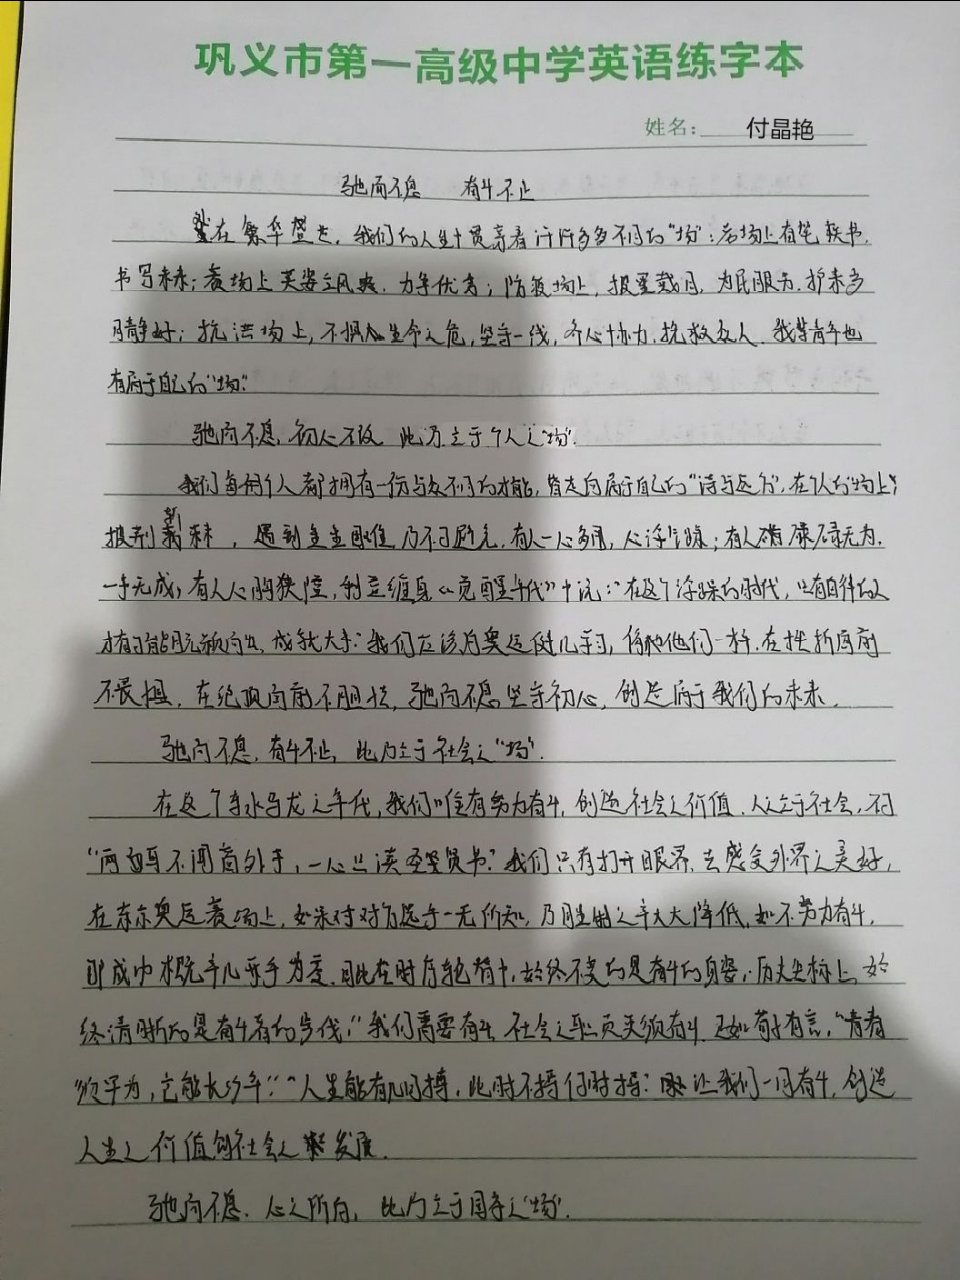 巩义市第一高级中学英语练字本
姓名： 付晶艳
驰而不息 奋斗不止
在繁华盛世，我们的人生中贯穿着许许多多不同的“场”：考场上有笔轶书，
书写未来；赛场上英姿飒爽，力争优秀；防疫场上，披星戴月，为民服务，护来岁
月静好；抗洪场上，不惧生命之危，坚守一线，齐心协力，抗救众人。我等青年也
有属于自己的“场”。
驰而不息，初心不改，此乃立于个人之“场”。
我们每个人都拥有一份与众不同的才能，皆走向属于自己的“诗与远方”，在个人的“场上”
披荆斩棘，遇到重重困难乃不可避免，有人一心多用，心浮气躁；有人碌碌无为，
一事无成；有人心胸狭隘，利益缠身《觉醒年代》中说：“在这个浮躁的时代，只有自律的人
才有可能脱颖而出，成就大事”我们应该向奥运健儿学习，像他们一样，在挫折面前
不畏惧，在绝境面前不胆怯，驰而不息，坚守初心，创造属于我们的未来。
驰而不息，奋斗不止，此乃立于社会之“场”。
在这个车水马龙之年代，我们唯有努力奋斗，创造社会之价值，人立于社会，不可
“两耳不闻窗外事，一心只读圣贤书”我们只有打开眼界，去感受外界之美好，
在东京奥运赛场上，如果对对方选手一无所知，乃胜利之率大大降低，如不努力奋斗，
那成功概率几乎为零，因此在时存轮替中，始终不变的是奋斗的身姿，历史坐标上，始
终清晰的是奋斗者的步伐，“我们需要奋斗，社会之瑕页关须奋斗，又如荀子有言，“青春
须早为，岂能长少年”“人生能有几回搏，此时不搏何时搏”让我们一同奋斗，创造
人生之价值创社会之发展。
驰而不息，心之所向，此乃立于国家之“场”。